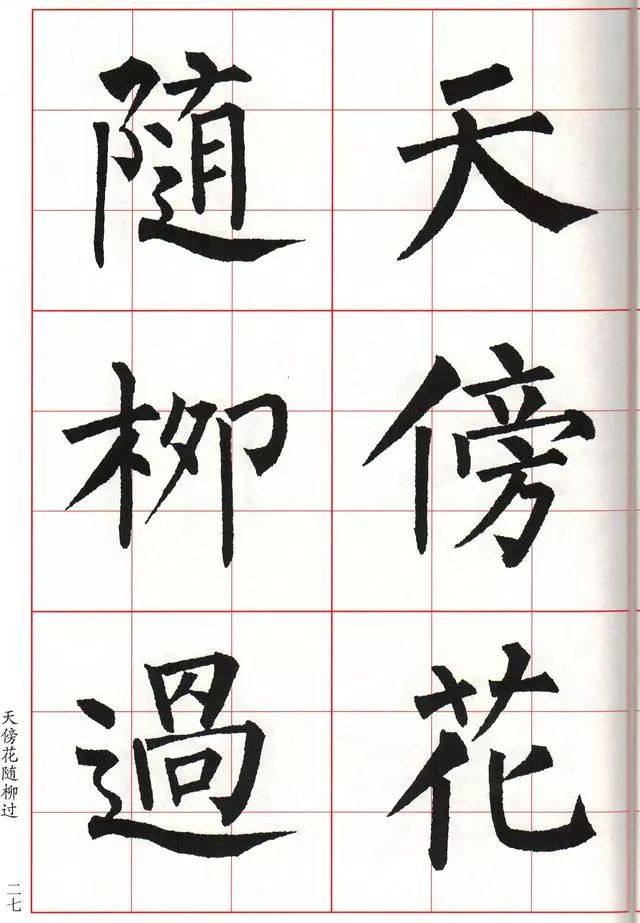 天傍花
随柳過
天傍花随柳过
二七